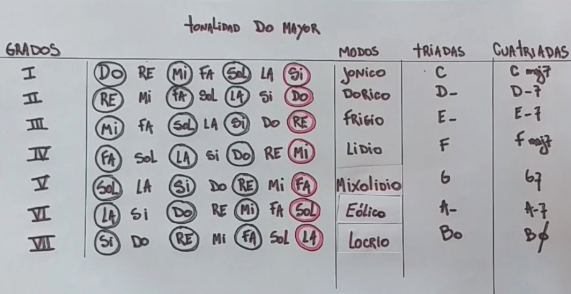 tonalidad Do Mayor
GRADOS MODOS tRIADAS CUatRIADAS
I DO RE Mi FA Sol LA Si JONICO C C maj7
II RE Mi FA Sol LA Si DO DORICO D- D-7
III Mi FA Sol LA Si DO RE FRIGIO E- E-7
IV FA Sol LA Si DO RE Mi LIDIO F F maj7
V Sol LA Si DO RE Mi FA MIXOLIDIO G G7
VI LA Si DO RE Mi FA Sol EÓLICO A- A-7
VII Si DO RE Mi FA Sol LA LOCRIO Bo Bø